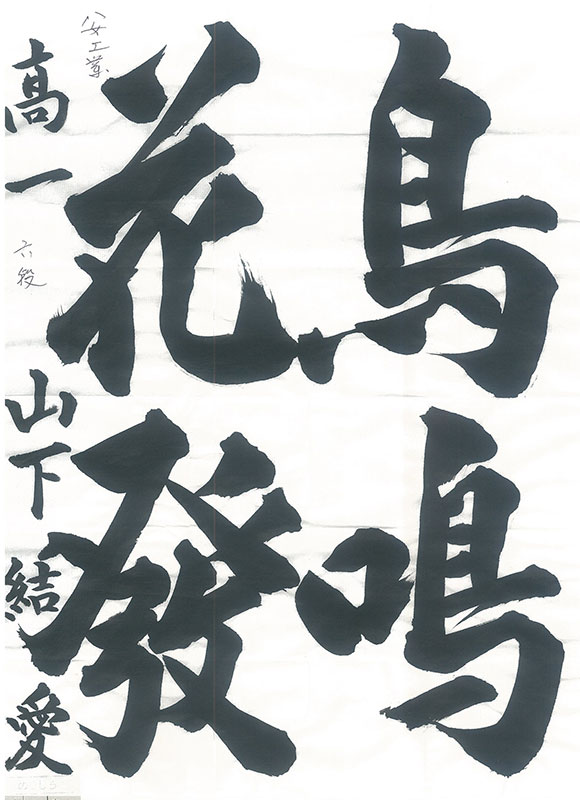 鳥鳴
花發
八女工業
高一 六段 山下結愛